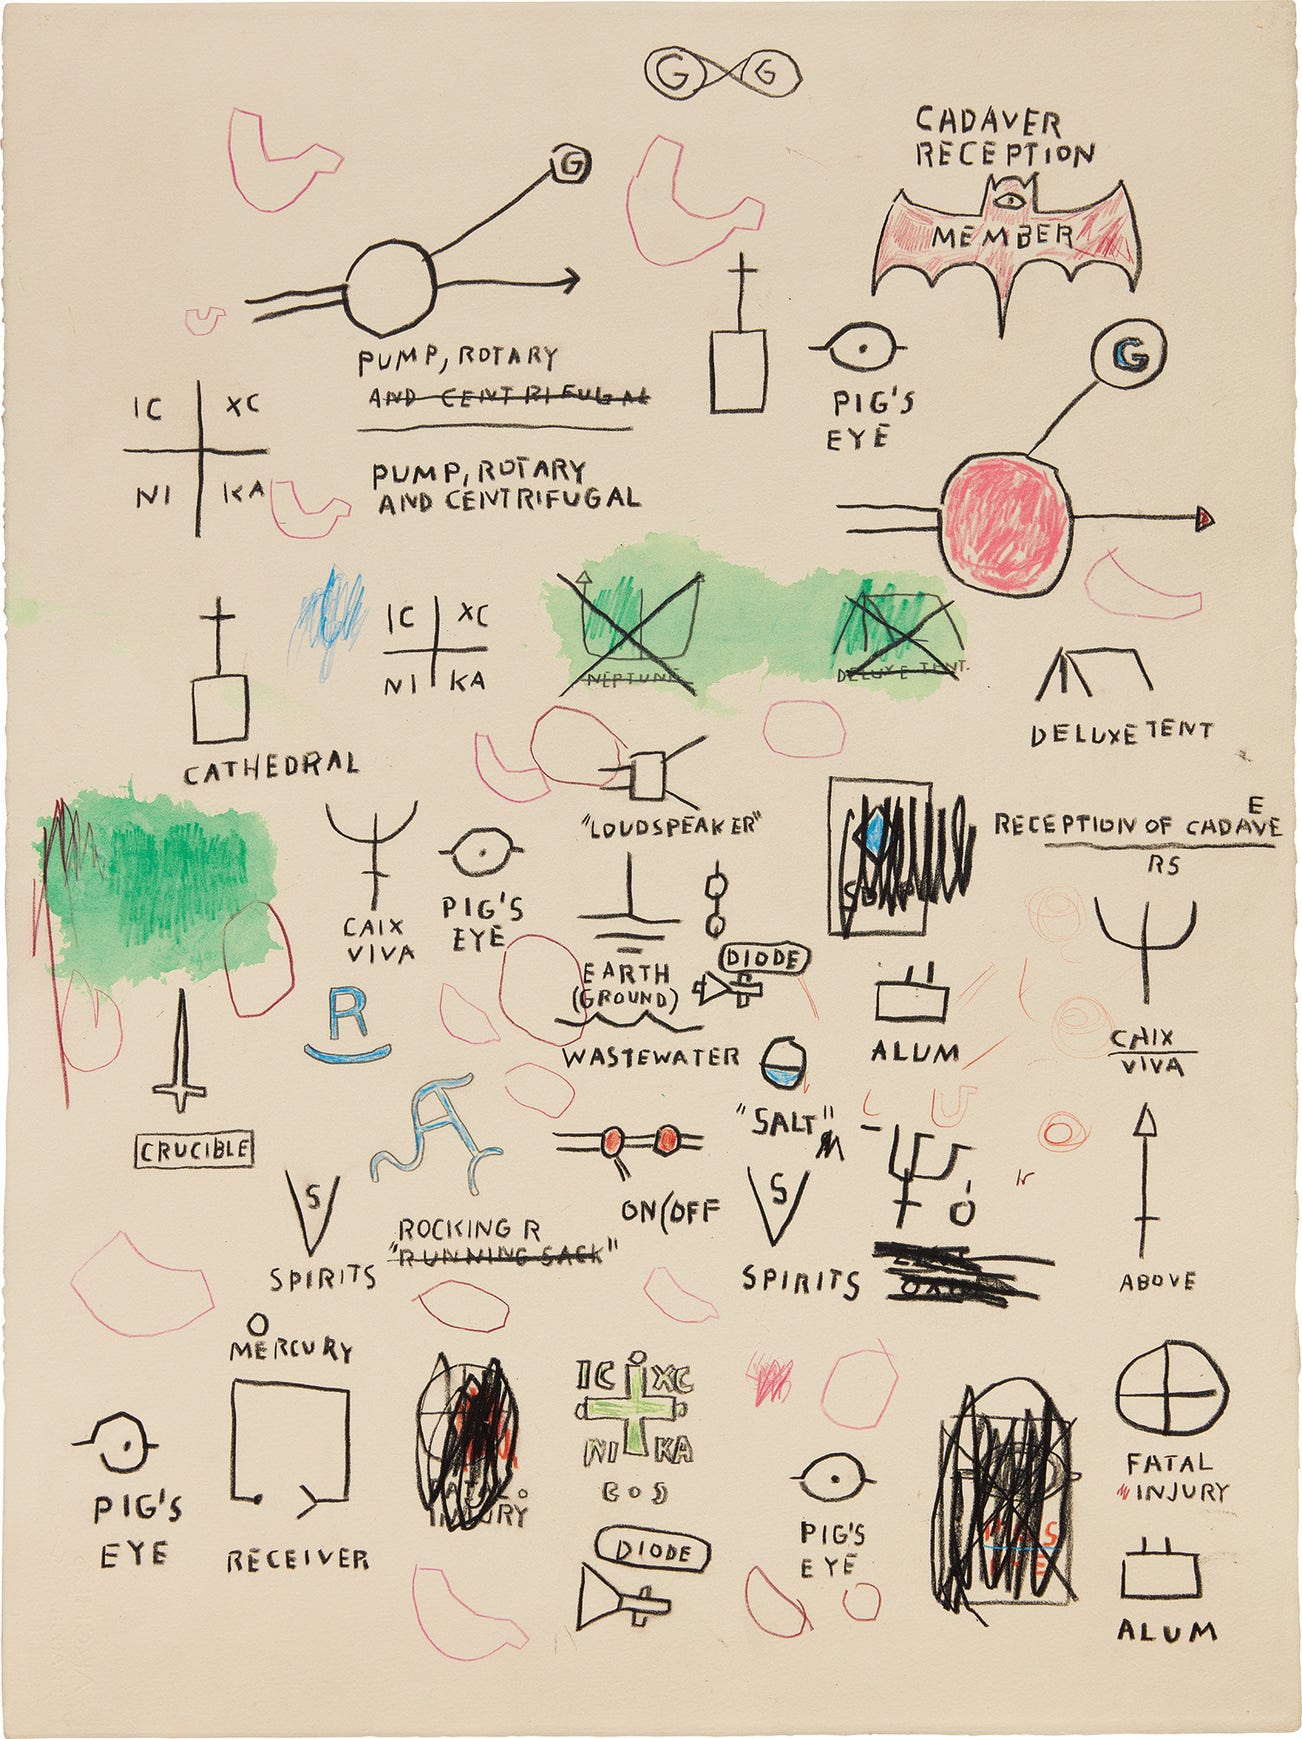 G G
CADAVER
RECEPTION
G
MEMBER
G
PUMP, ROTARY
AND CENTRIFUGAL
PIG'S
EYE
IC XC
NI KA
PUMP, ROTARY
AND CENTRIFUGAL
IC XC
NI KA
NEPTUNE
DELUXE TENT.
DELUXE TENT
CATHEDRAL
"LOUDSPEAKER"
E
RECEPTION OF CADAVE
RS
CAIX
VIVA
PIG'S
EYE
EARTH
(GROUND)
DIODE
R
WASTEWATER
ALUM
CAIX
VIVA
"SALT"
CRUCIBLE
A
S
S
ROCKING R
"RUNNING SACK"
ON/OFF
SPIRITS
SPIRITS
ABOVE
MERCURY
IC XC
NI KA
PIG'S
EYE
RECEIVER
INJURY
DIODE
PIG'S
EYE
FATAL
INJURY
ALUM